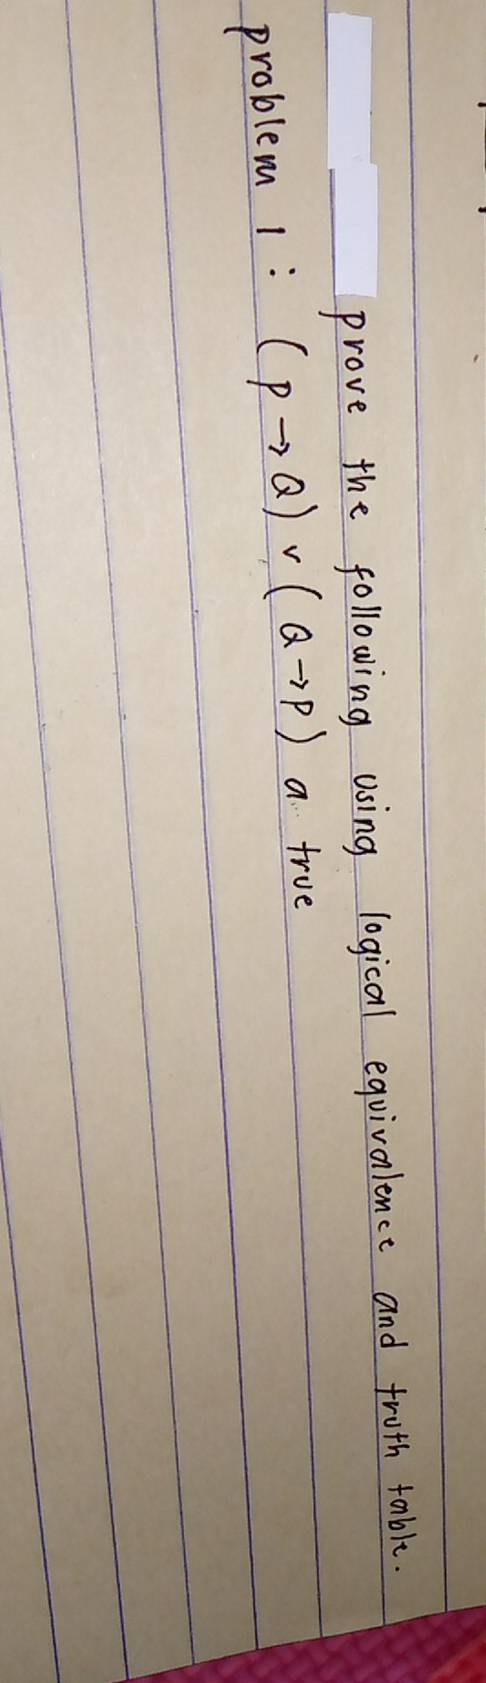 prove the following using logical equivalence and truth table.
problem 1 : (p → Q) v (Q → P) a true